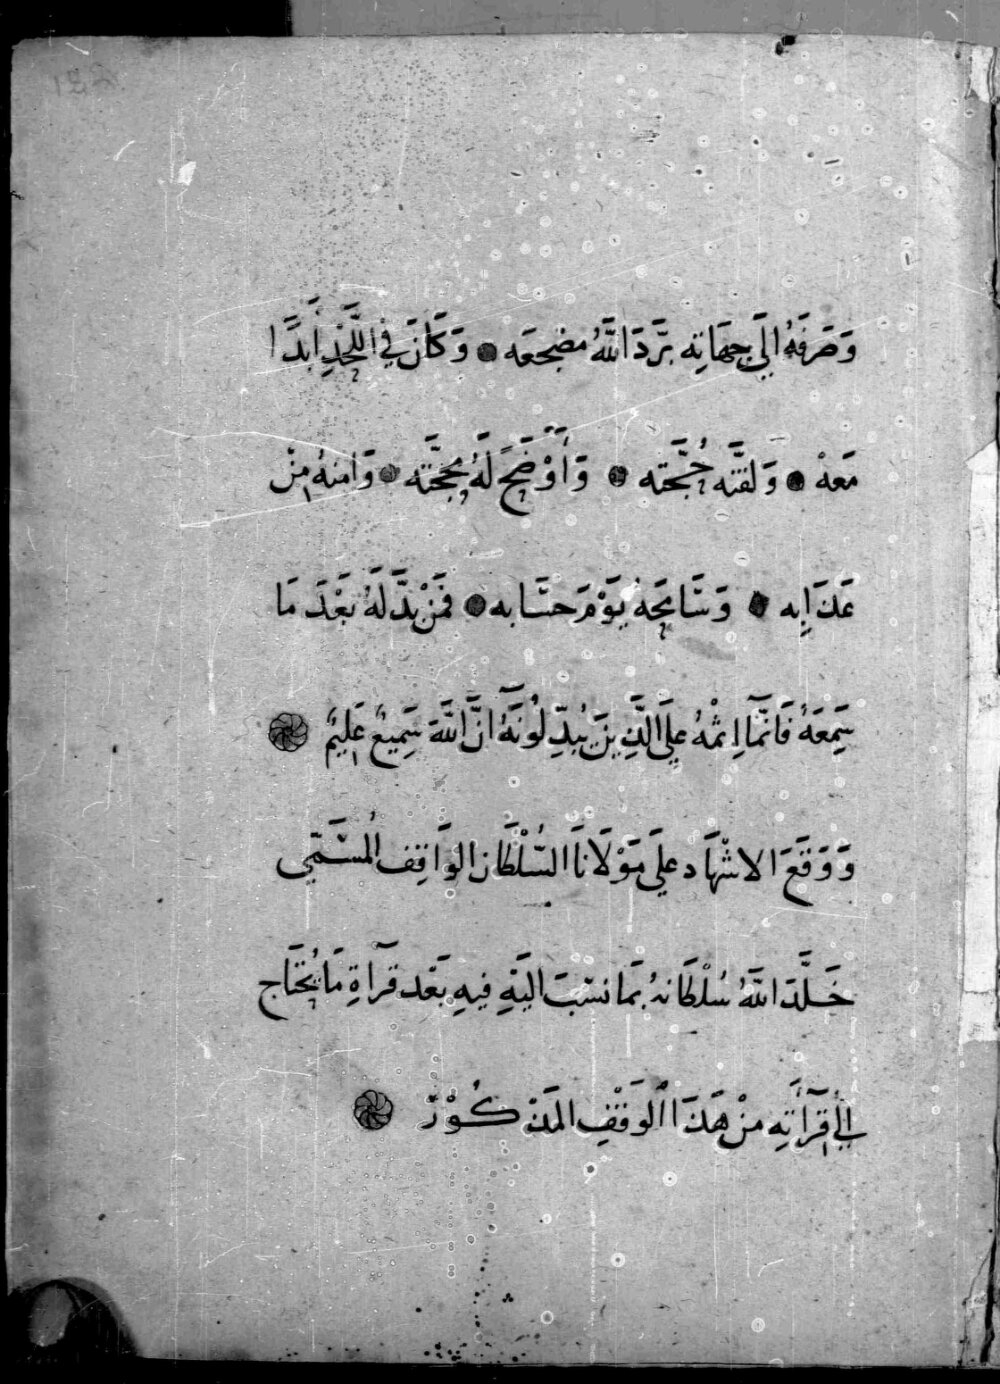 وَصَرَفَهُ اِلَي جِهَاتِه بَرَّدَ اللَّهُ مضجعَه ● وَكَانَ فِي اللَّحْدِ أَبَدًا
مَعَهْ ● وَلقنَّه حُجَّته ● وَأَوْضَحَ لَهُ مَحَجَّته ● وَامنهُ مِنْ
عَذَابِه ● وَسَامَحَهُ يَوْمَ حسَابه ● فَمَنْ بَدَّلَهُ بَعْدَ مَا
سَمِعَهُ فَاِنَّمَآ اِثْمُهُ عَلَي الَّذِينَ يُبَدِّلُونَهُٓ اِنَّ اللَّهَ سَمِيعٌ عَلِيمٌ
وَوَقَعَ الاشْهَاد علَي مَوْلَانَا السُّلْطَان الوَاقِف المُسَمَّي
خَلَّدَ اللَّهُ سُلْطَانهُ بمَا نسَبَ اليَهِ فِيهِ بَعْد قرآةِ مَا يُحْتَاج
اِلَي قِرَآأَتِه منْ هَذَا الوَقْفِ المَذْكُوْر